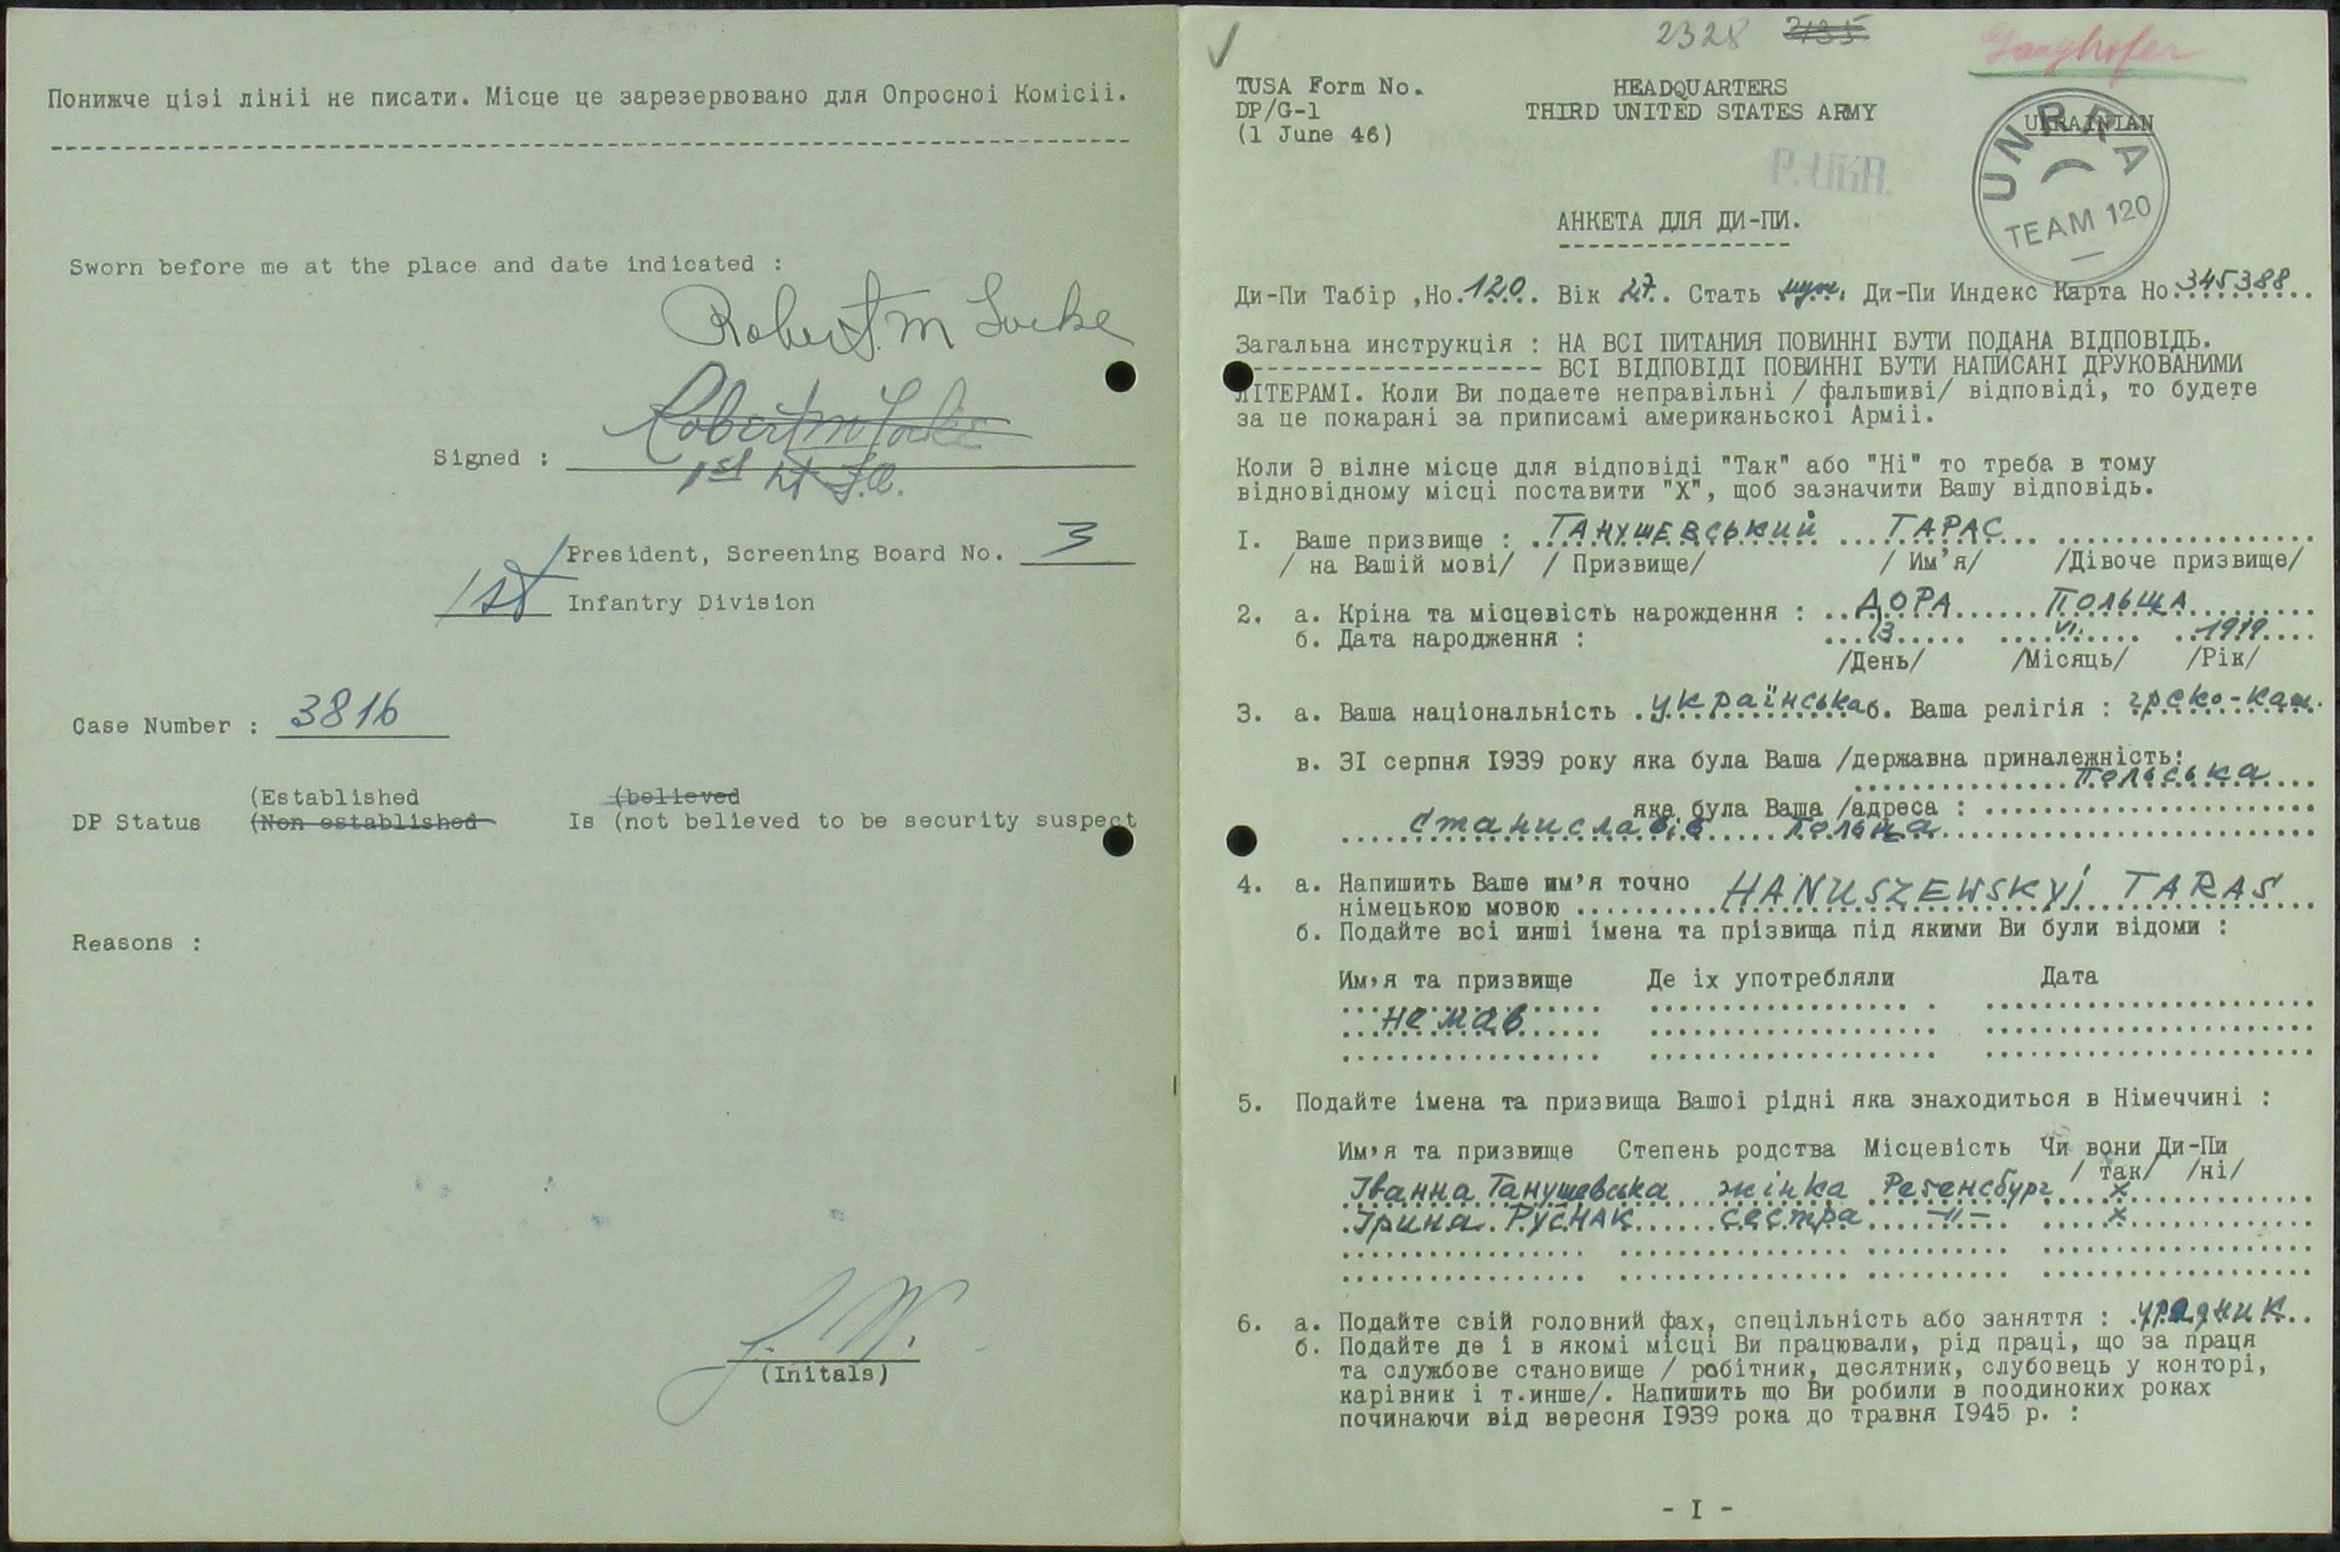 Понижче цізі лініі не писати. Місце це зарезервовано для Опросноі Комісіі.
Sworn before me at the place and date indicated :
Robert M Locke
Robert M Locke
Signed :
1st Lt F.A.
President, Screening Board No. 3
1st Infantry Division
Case Number : 3816
(Established (believed
DP Status (Non established Is (not believed to be security suspect
Reasons :
(Initals)
2328 2135
Ganghofer
TUSA Form No. HEADQUARTERS
DP/G-1 THIRD UNITED STATES ARMY UKRAINIAN
(1 June 46)
UNRRA
TEAM 120
P. UKR.
АНКЕТА ДЛЯ ДИ-ПИ.
Ди-Пи Табір ,Но. 120 Вік 27 Стать муж. Ди-Пи Индекс Карта Но. 345388
Загальна инструкція : НА ВСІ ПИТАНИЯ ПОВИННІ БУТИ ПОДАНА ВІДПОВІДЬ.
ВСІ ВІДПОВІДІ ПОВИННІ БУТИ НАПИСАНІ ДРУКОВАНИМИ
ЛІТЕРАМІ. Коли Ви подаете неправільні / фальшиві/ відповіді, то будете
за це покарані за приписамі американьскоі Арміі.
Коли Э вілне місце для відповіді "Так" або "Ні" то треба в тому
відновідному місці поставити "X", щоб зазначити Вашу відповідь.
I. Ваше призвище : ГАНУШЕВСЬКИЙ ТАРАС
/ на Вашій мові/ / Призвище/ / Им'я/ /Дівоче призвище/
2. а. Кріна та місцевість нарождення : ДОРА ПОЛЬЩА
б. Дата народження : 13 VI. 1919
/День/ /Місяць/ /Рік/
3. а. Ваша національність українська б. Ваша релігія : грєко-кат.
в. 3I серпня I939 року яка була Ваша /державна приналежність:
польська
яка була Ваша /адреса :
Станиславів Польща
4. а. Напишить Ваше им'я точно HANUSZEWSKYJ TARAS
німецькою мовою
б. Подайте всі инші імена та прізвища під якими Ви були відоми :
Им'я та призвище Де іх употребляли Дата
не мав
5. Подайте імена та призвища Вашоі рідні яка знаходиться в Німеччині :
Им'я та призвище Степень родства Місцевість Чи вони Ди-Пи
/ так/ /ні/
Іванна Ганушевська жінка Регенсбург x
Ірина РУСНАК сестра -"- x
6. а. Подайте свій головний фах, спецільність або заняття : урядник
б. Подайте де і в якомі місці Ви працювали, рід праці, що за праця
та службове становище / робітник, десятник, слубовець у конторі,
карівник і т.инше/. Напишить що Ви робили в поодиноких роках
починаючи від вересня I939 рока до травня I945 р. :
- I -